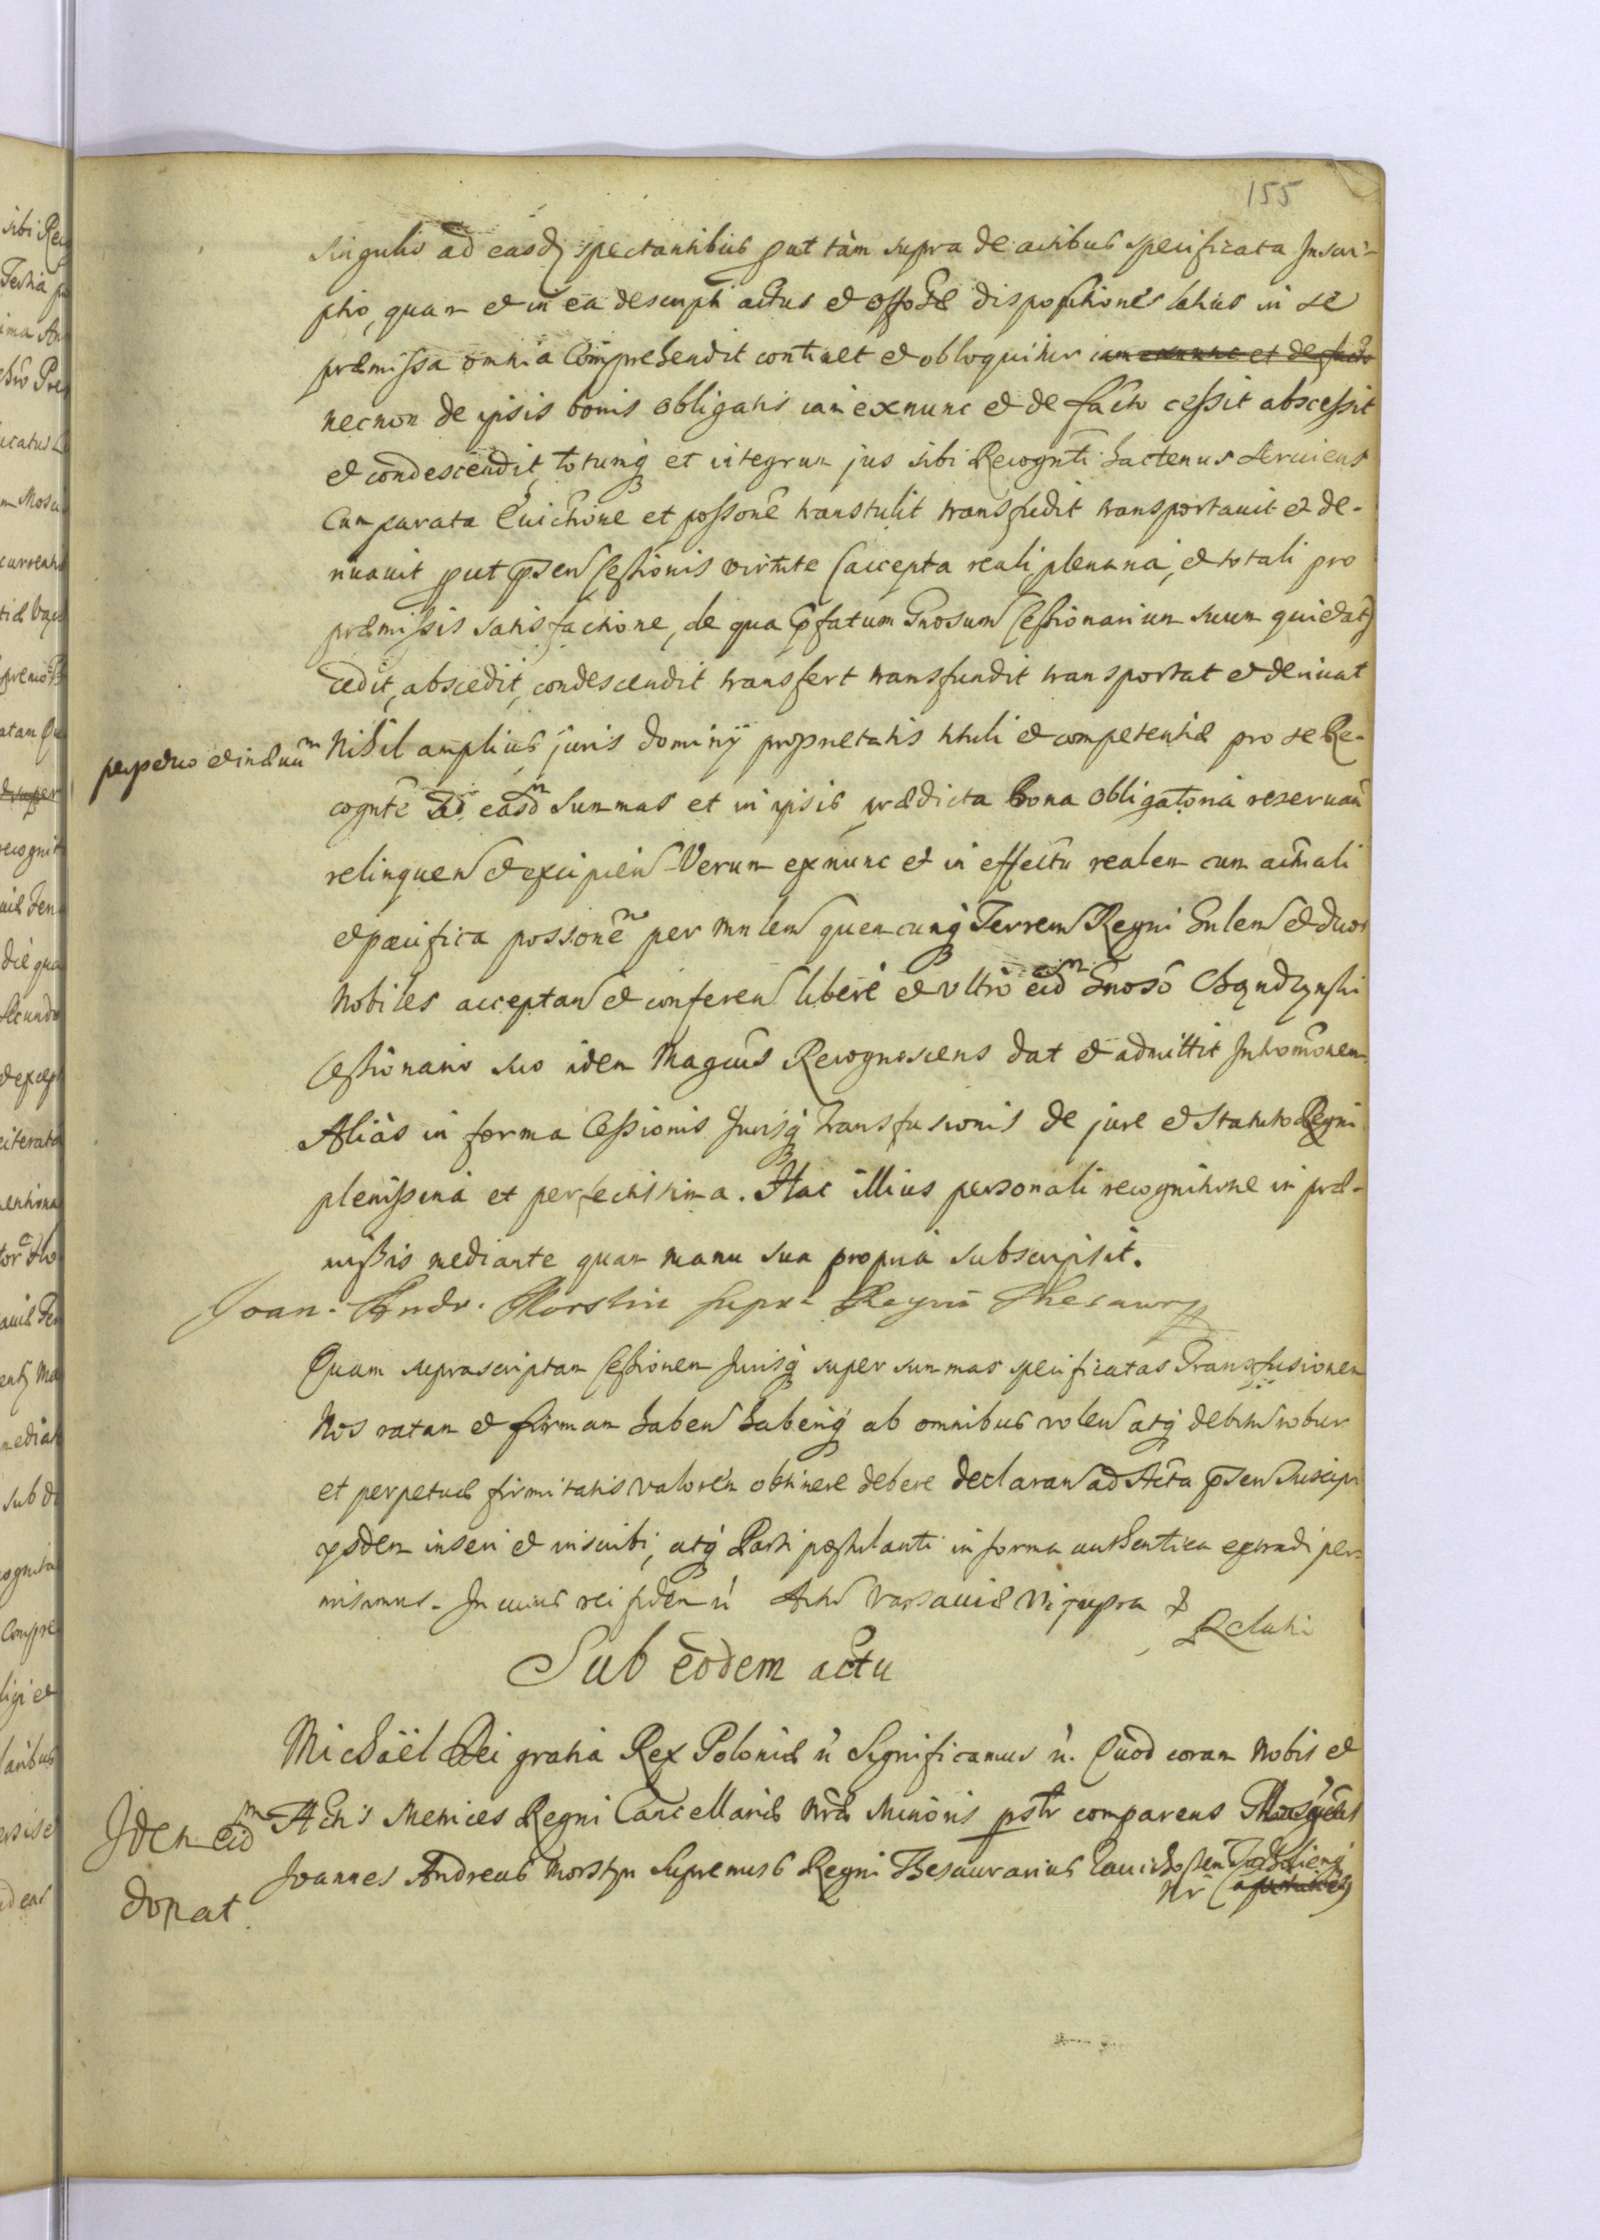 155
singulis ad easd spectantibus put tàm supra de actibus specificata Inscri-
ptio, quam et in ea descripti actus et dispositiones latius in se
præmissa omnia Comprehendit continet et obloquitur iam exnunc et de facto
necnon de ipsis bonis obligatis iam exnunc et de facto cessit abscessit
et condescendit, totumq et integrum jus sibi Recognti hactenus seruiens
Cum parata Euictione et possone transtulit transfudit transportauit et de-
riuauit put psen Cessionis virtute (accepta reali, plenaria, et totali pro
præmissis satisfactione, de qua pfatum Gnosum Cessionarium suum quietat)
cedit, abscedit, condescendit transfert transfundit transportat et deriuat
perpetuo et in æuum
Nihil amplius juris dominij proprietatis tituli et competentiæ pro se Re-
cognte ad easdm Summas et in ipsis prædicta Bona obligatoria reseruan
relinquen et excipien Verum exnunc et in effectu realem cum actuali
et pacifica possonem per Mnlem quemcunq Terrem Regni Gnlem et duos
Nobiles acceptan et conferen liberè et vltrò eidm Gnoso Chądzynski
Cessionario suo idem Magcus Recognoscens dat et admittit Intromonem
Aliàs in forma Cessionis Jurisq transfusionis de jure et statuto Regni
plenissima et perfectissima. Hac illius personali recognitione in præ-
missis mediante quam manu sua propria subscripsit.
Joan. Andr. Morstin supr. Regni Thesaur
Quam suprascriptam Cessionem Jurisq super summas specificatas Transfusionem
Nos ratam et firmam haben haberiq ab omnibus volen atq debitum robur
et perpetuæ firmitatis valorem obtinere debere declaran ad Acta psen Suscipi
ysdem inseri et inscribi, atq Parti postulanti in forma authentica extradi per-
misimus. In cuius rei fidem Act Varsauiæ Vt supra
Relati
Sub eodem actu
Michaël Dei gratia Rex Poloniæ Significamus. Quòd coram Nobis et
Idem eidm
donat
Actis Metrices Regni Cancellariæ Nræ Minoris pstr comparens Magcus
Joannes Andreas Morstyn Supremus Regni Thesaurarius
Nr